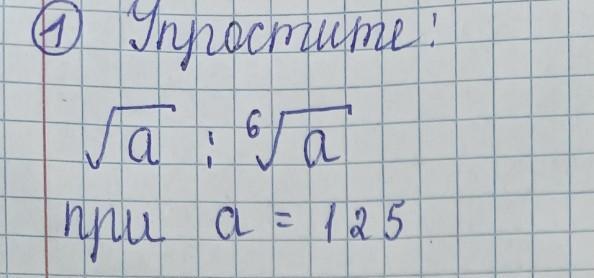 ① Упростите:
√a : ⁶√a
при a = 125